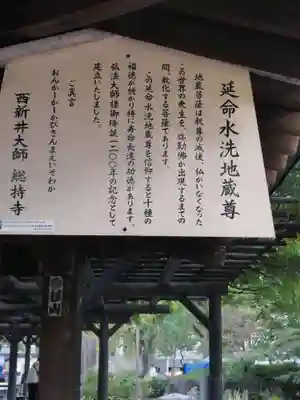 延命水洗地蔵尊
地蔵菩薩は釈尊の滅後、仏がいなくなった
この世界の衆生を、弥勒佛が出現するまでの
間、教化する菩薩であります。
この延命水洗地蔵尊を信仰すると十種の
福徳が授かり特に寿命長遠の功徳があります。
弘法大師様御降誕一二〇〇年の記念として
建立いたしました。
ご真言
おんかーかーかびさんまえいそわか
西新井大師 總持寺